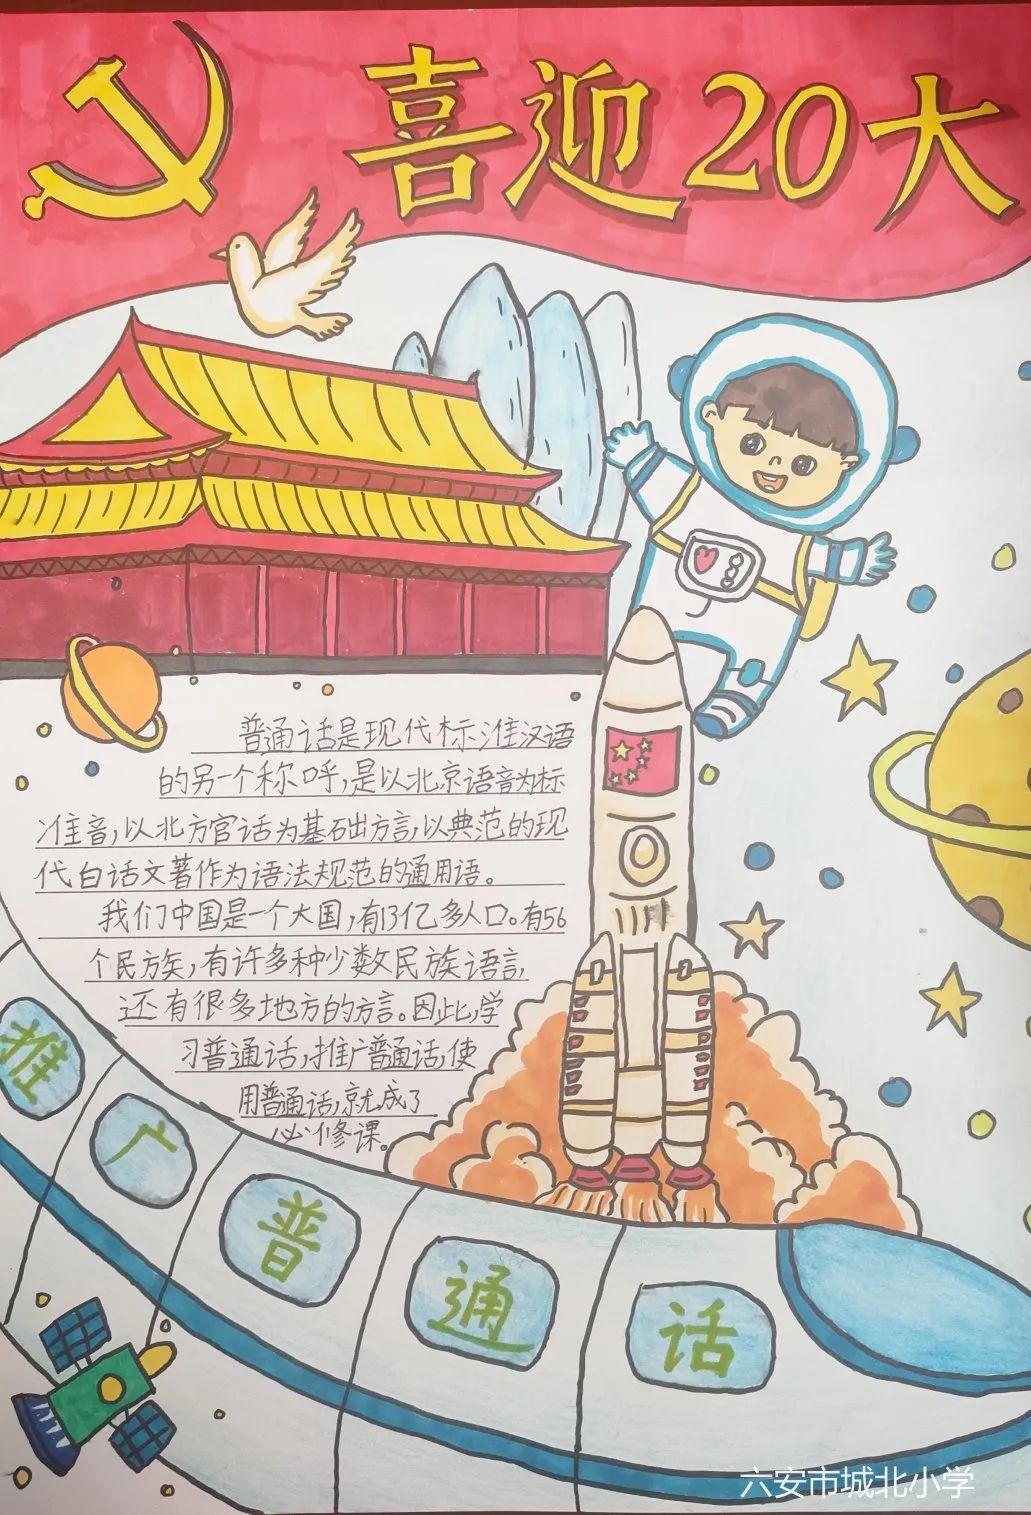 喜迎20大
普通话是现代标准汉语
的另一个称呼,是以北京语音为标
准音,以北方官话为基础方言,以典范的现
代白话文著作为语法规范的通用语。
我们中国是一个大国,有13亿多人口。有56
个民族,有许多种少数民族语言,
还有很多地方的方言。因此,学
习普通话,推广普通话,使
用普通话,就成了
必修课。
推广普通话
六安市城北小学